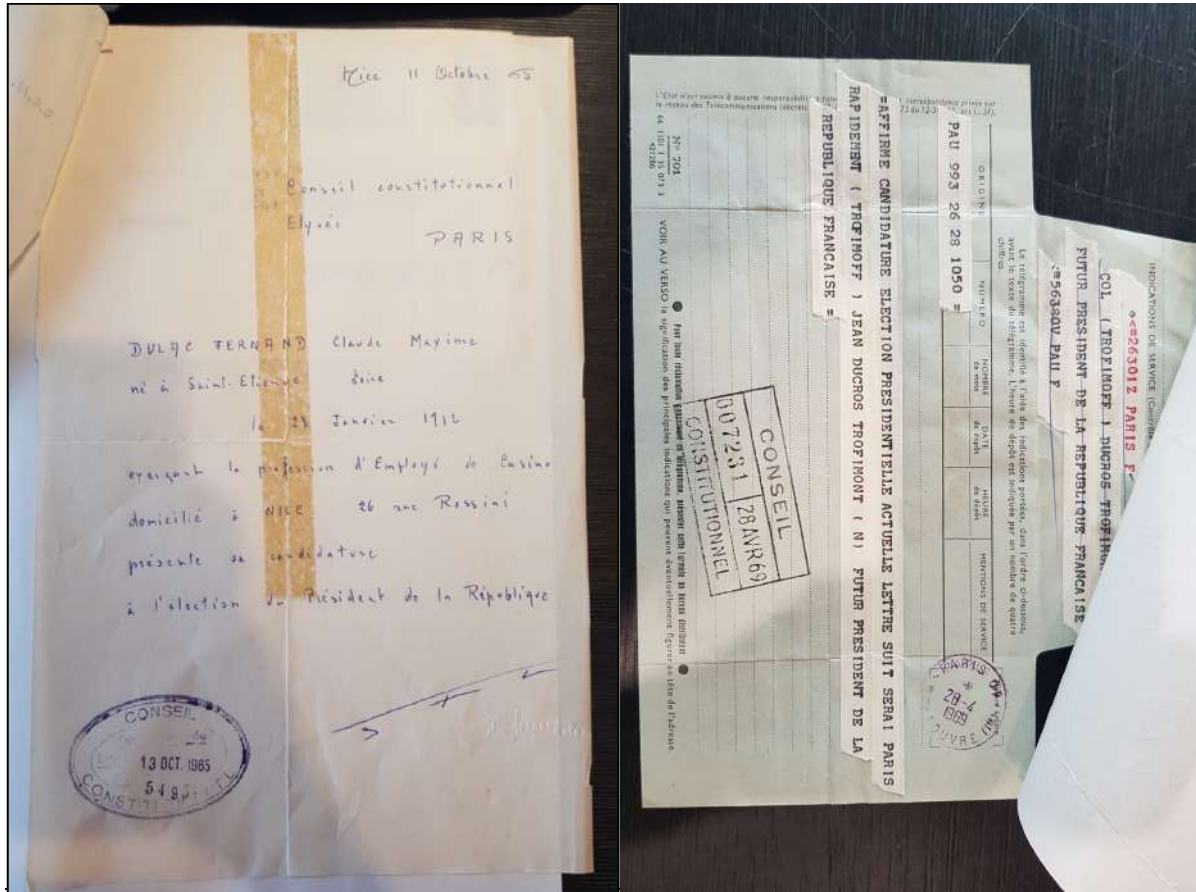 Nice 11 Octobre 65
Conseil constitutionnel
Elysée
PARIS
DULAC FERNAND Claude Maxime
né à Saint-Etienne Loire
le 28 Janvier 1912
exerçant la profession d'Employé de Casino
domicilié à NICE 26 rue Rossini
présente sa candidature
à l'élection du Président de la République
CONSEIL
13 OCT. 1965
CONSTITUTIONNEL
INDICATIONS DE SERVICE
263012 PARIS F
COL ( TROFIMOFF ) DUCROS TROFIM
FUTUR PRESIDENT DE LA REPUBLIQUE FRANCAISE
=56380V PAU F
Le télégramme est identifié à l'aide des indications portées, dans l'ordre ci-dessous,
avant le texte du télégramme. L'heure de dépôt est indiquée par un nombre de quatre
chiffres.
ORIGINE NUMÉRO NOMBRE de mots DATE de dépôt HEURE de dépôt MENTIONS DE SERVICE
PAU 993 26 28 1050 =
PARIS
28-4
1969
LOUVRE
=AFFIRME CANDIDATURE ELECTION PRESIDENTIELLE ACTUELLE LETTRE SUIT SERAI PARIS
RAPIDEMENT ( TROFIMOFF ) JEAN DUCROS TROFIMONT ( N) FUTUR PRESIDENT DE LA
REPUBLIQUE FRANCAISE =
CONSEIL
007231 28 AVR 69
CONSTITUTIONNEL
L'État n'est soumis à aucune responsabilité à correspondance privée sur
le réseau des Télécommunications
N° 701
● Pour toute réclamation concernant ce télégramme, présenter cette formule au bureau distributeur ●
VOIR AU VERSO la signification des principales indications qui peuvent éventuellement figurer en tête de l'adresse.